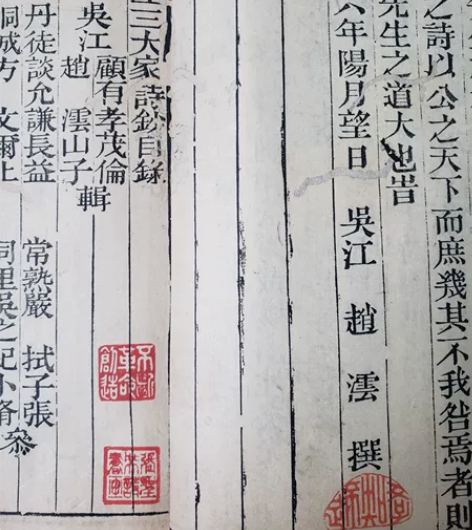 之詩以公之天下而庶幾其不我咎焉者則
先生之道大也昔
六年陽月望日 吳江 趙 澐 撰
三大家詩鈔目錄
吳江 顧有孝茂倫
趙 澐山子 輯
丹徒談允謙長益 常熟嚴 拭子張
桐城方 文爾止 同里吳之紀小脩 參
不斷
革命
創造